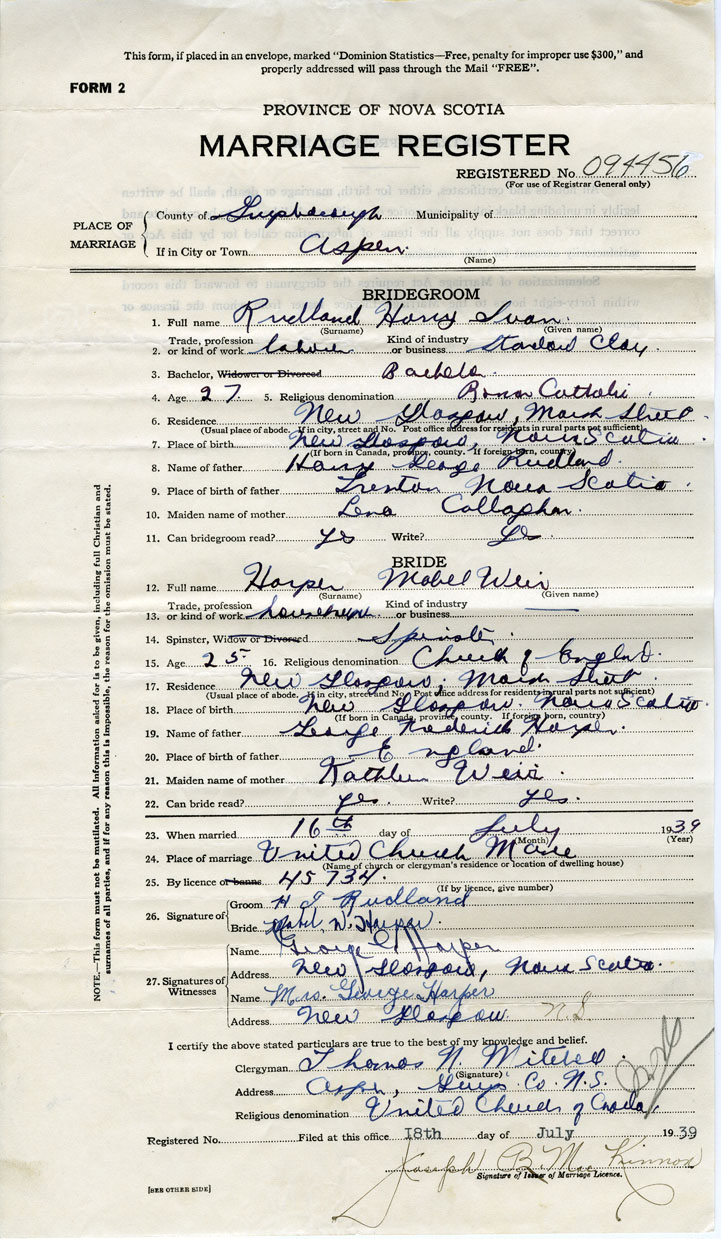 This form, if placed in an envelope, marked "Dominion Statistics—Free, penalty for improper use $300," and
properly addressed will pass through the Mail "FREE".
FORM 2
PROVINCE OF NOVA SCOTIA
MARRIAGE REGISTER
REGISTERED No. 094456
(For use of Registrar General only)
PLACE OF MARRIAGE
County of Guysborough Municipality of
If in City or Town Aspen
(Name)
BRIDEGROOM
1. Full name Rudland Harry Ivan
(Surname) (Given name)
Trade, profession Kind of industry
2. or kind of work labourer or business Clay
3. Bachelor, Widower or Divorced Bachelor
4. Age 27 5. Religious denomination Roman Catholic
6. Residence New Glasgow, Marsh Street
(Usual place of abode. If in city, street and No. Post office address for residents in rural parts not sufficient)
7. Place of birth New Glasgow, Nova Scotia
(If born in Canada, province, county. If foreign born, country)
8. Name of father Harry George Rudland
9. Place of birth of father Trenton Nova Scotia
10. Maiden name of mother Lena Callaghan
11. Can bridegroom read? Yes Write? Yes
BRIDE
12. Full name Harper Mabel Weir
(Surname) (Given name)
Trade, profession Kind of industry
13. or kind of work or business —
14. Spinster, Widow or Divorced Spinster
15. Age 25 16. Religious denomination Church of England
17. Residence New Glasgow, Marsh Street
(Usual place of abode. If in city, street and No. Post office address for residents in rural parts not sufficient)
18. Place of birth New Glasgow. Nova Scotia
(If born in Canada, province, county. If foreign born, country)
19. Name of father George Roderick Harper
20. Place of birth of father England
21. Maiden name of mother Kathleen Weir
22. Can bride read? yes. Write? yes.
23. When married 16th day of July 1939
(Month) (Year)
24. Place of marriage United Church Manse
(Name of church or clergyman's residence or location of dwelling house)
25. By licence or banns 45734
(If by licence, give number)
26. Signature of
Groom H I Rudland
Bride Mabel W. Harper
27. Signatures of Witnesses
Name George Harper
Address New Glasgow, Nova Scotia
Name Mrs. George Harper
Address New Glasgow N.S.
I certify the above stated particulars are true to the best of my knowledge and belief.
Clergyman Thomas N. Mitchell
(Signature)
Address Aspen, Guys Co. N.S.
Religious denomination United Church of Canada
Registered No. Filed at this office 18th day of July 1939
Joseph B. MacKinnon
Signature of Issuer of Marriage Licence.
[SEE OTHER SIDE]
NOTE.—This form must not be mutilated. All information asked for is to be given, including full Christian and
surnames of all parties, and if for any reason this is impossible, the reason for the omission must be stated.